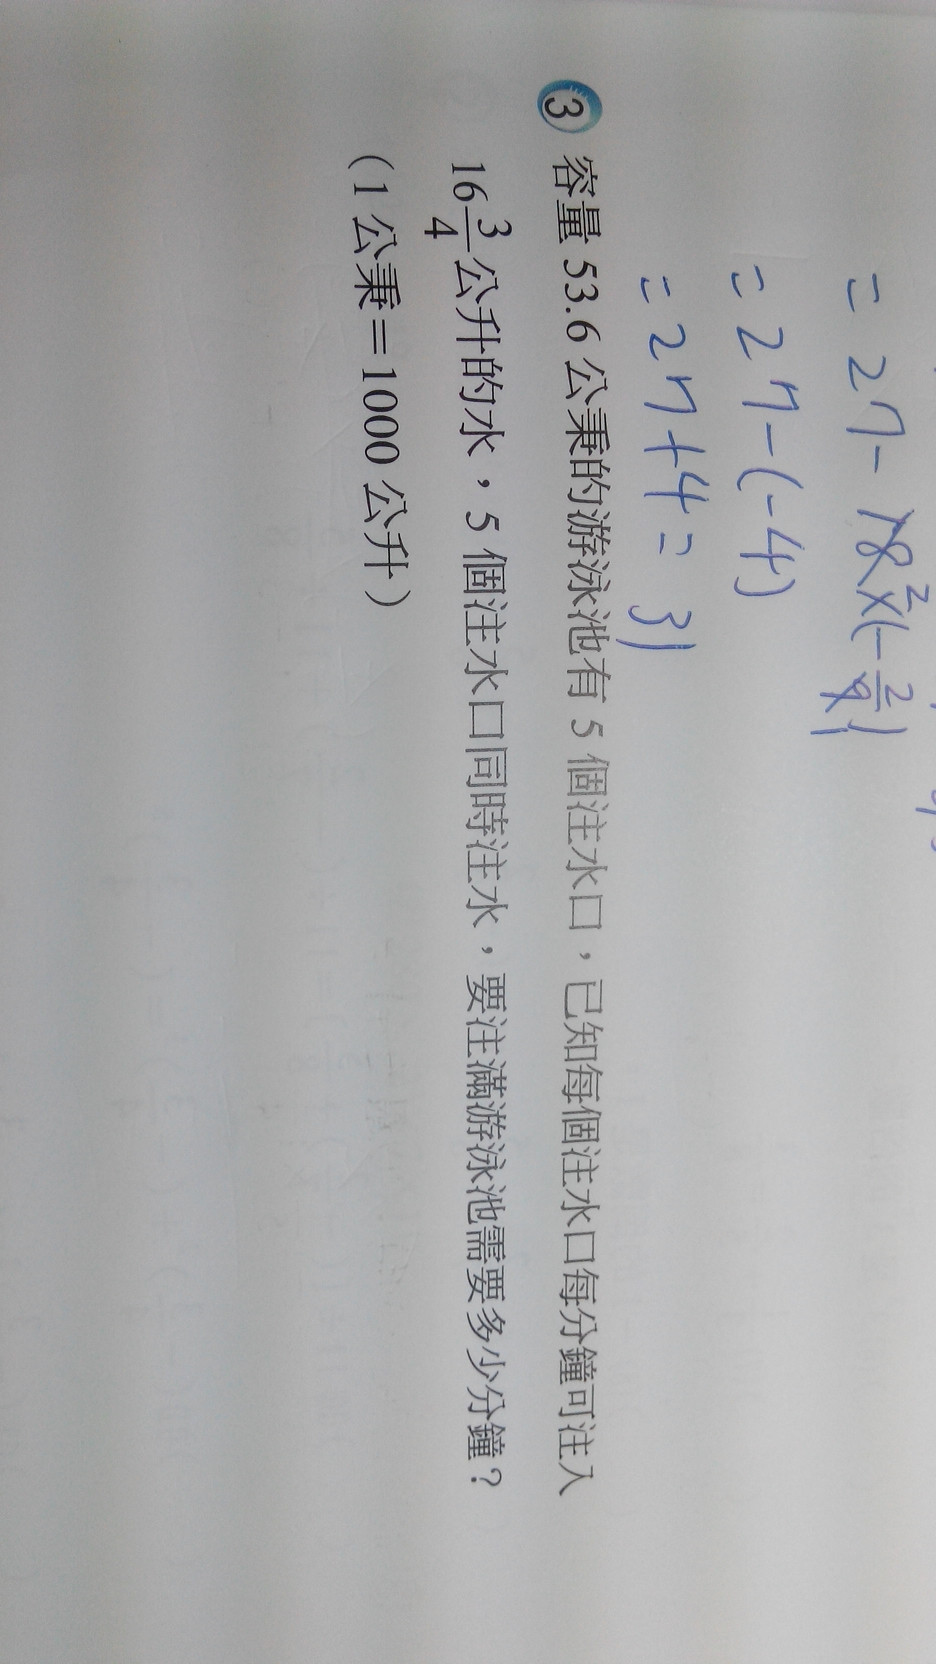 = 27 - 18² × (- 2/9 1)
= 27 - (-4)
= 27 + 4 = 31
3 容量 53.6 公秉的游泳池有 5 個注水口，已知每個注水口每分鐘可注入
16 3/4 公升的水，5 個注水口同時注水，要注滿游泳池需要多少分鐘？
（1 公秉＝1000 公升）